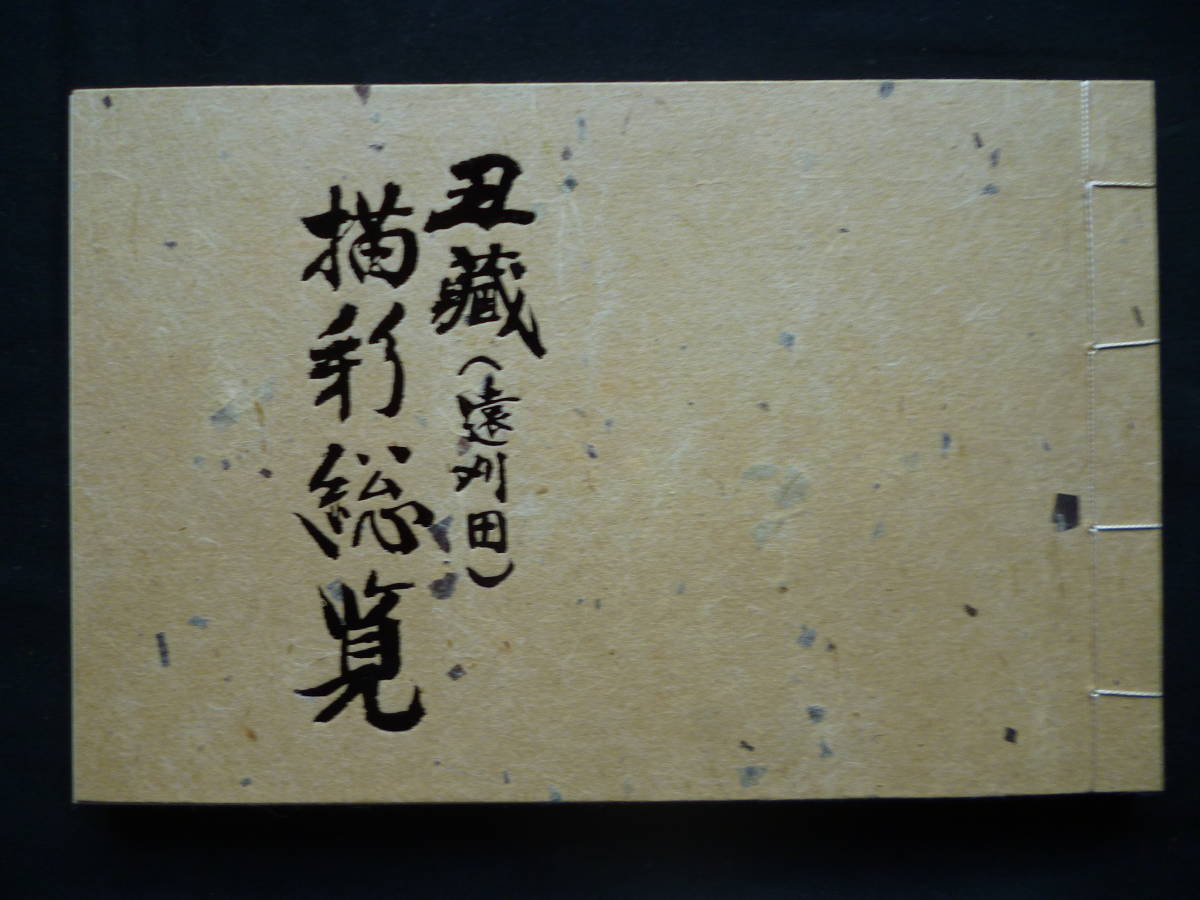 丑藏(遠刈田)
描彩総覧